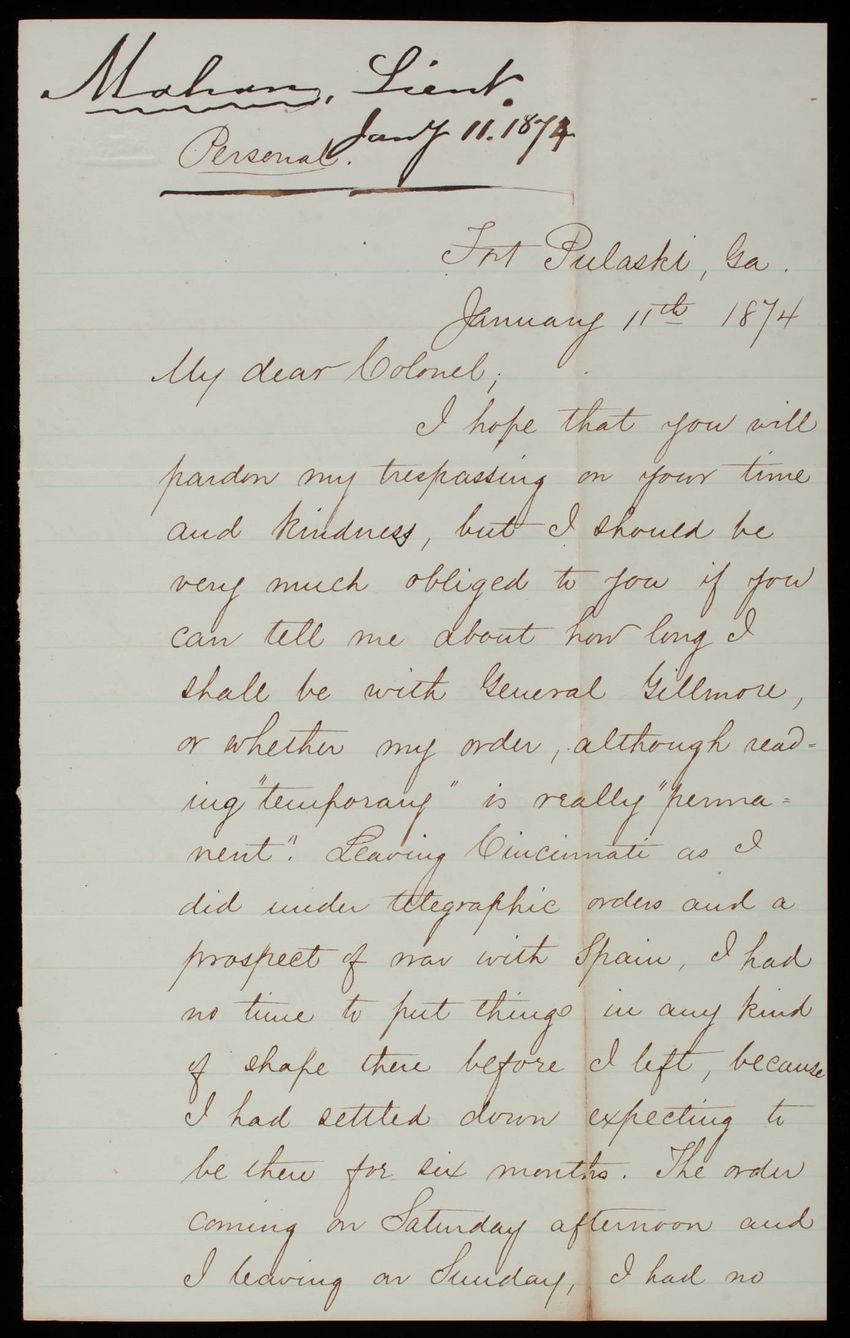 Mahan, Lieut.
Jany 11. 1874
Personal.
Fort Pulaski, Ga.
January 11th 1874
My dear Colonel,
I hope that you will
pardon my trespassing on your time
and kindness, but I should be
very much obliged to you if you
can tell me about how long I
shall be with General Gillmore,
or whether my order, although read=
ing "temporary" is really "perma=
nent". Leaving Cincinnati as I
did under telegraphic orders and a
prospect of war with Spain, I had
no time to put things in any kind
of shape there before I left, because
I had settled down expecting to
be there for six months. The order
coming on Saturday afternoon and
I leaving on Sunday, I had no